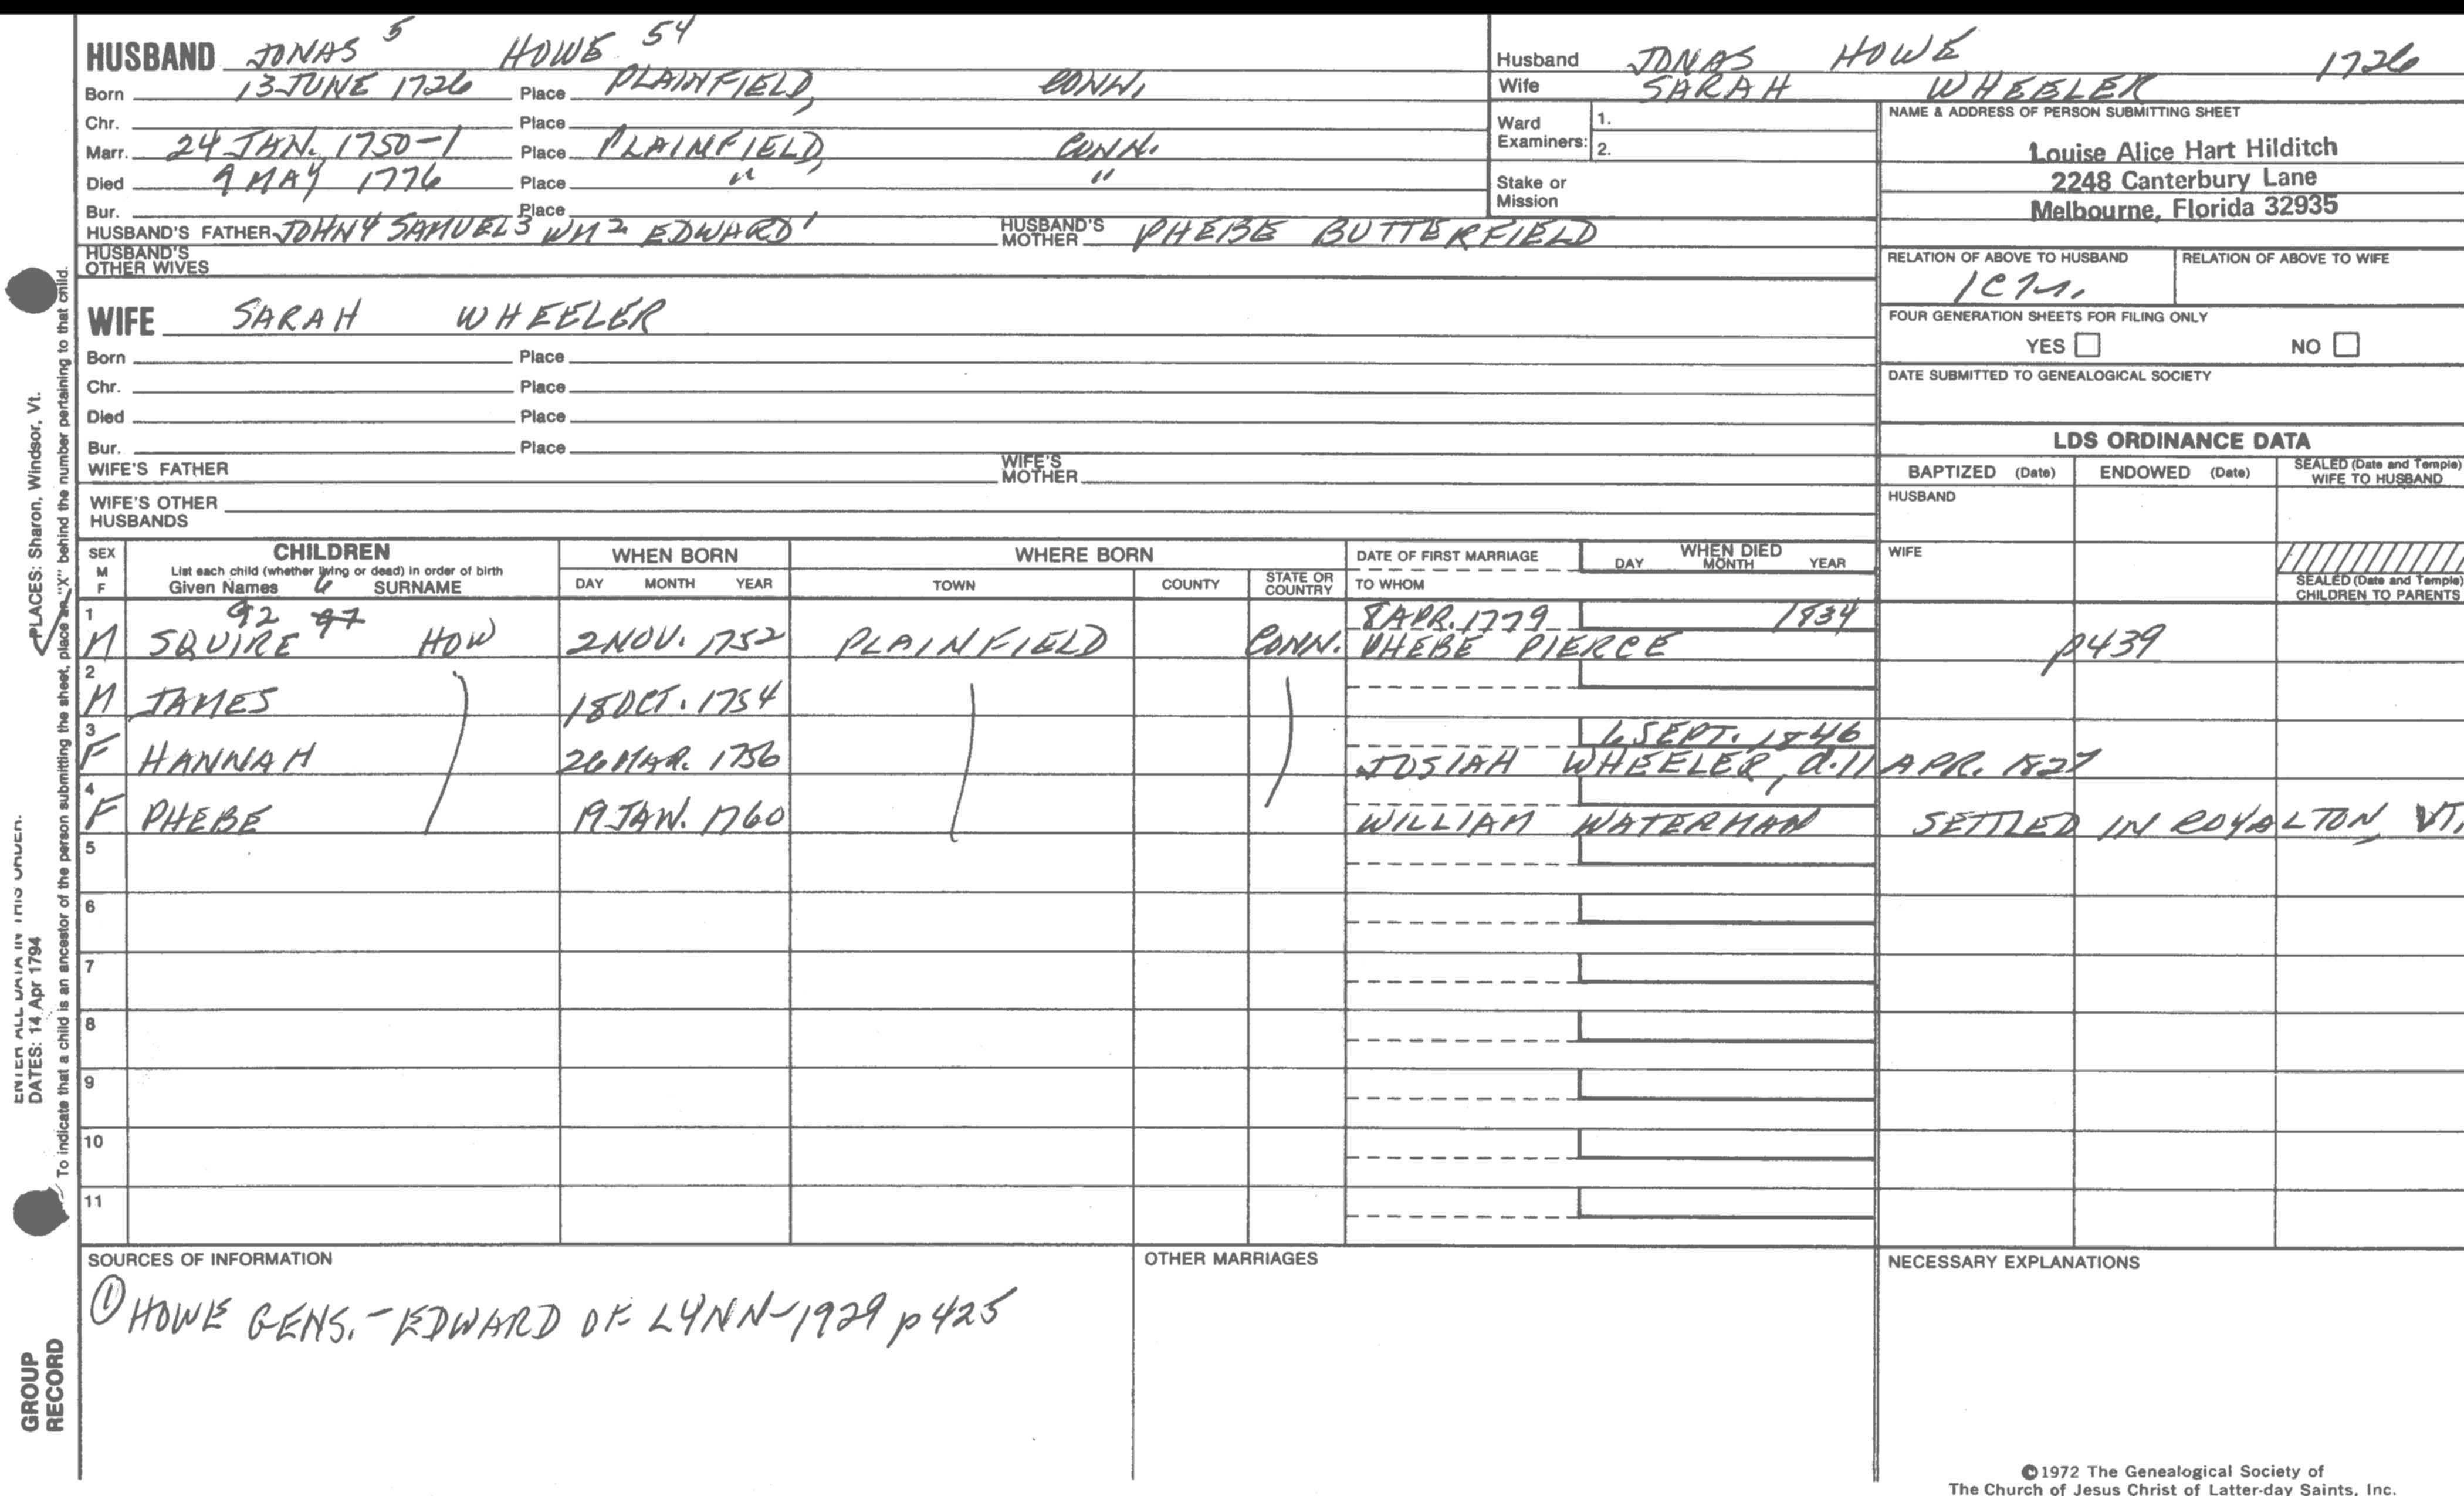 HUSBAND JONAS 5 HOWE 54
Born 13 JUNE 1726 Place PLAINFIELD, CONN.
Chr. Place
Marr. 24 JAN. 1750-1 Place PLAINFIELD, CONN.
Died 9 MAY 1776 Place " "
Bur. Place
HUSBAND'S FATHER JOHN4 SAMUEL3 WM2 EDWARD1 HUSBAND'S MOTHER PHEBE BUTTERFIELD
HUSBAND'S OTHER WIVES
WIFE SARAH WHEELER
Born Place
Chr. Place
Died Place
Bur. Place
WIFE'S FATHER WIFE'S MOTHER
WIFE'S OTHER HUSBANDS
Husband JONAS HOWE 1726
Wife SARAH WHEELER
Ward Examiners: 1.
2.
Stake or Mission
NAME & ADDRESS OF PERSON SUBMITTING SHEET
Louise Alice Hart Hilditch
2248 Canterbury Lane
Melbourne, Florida 32935
RELATION OF ABOVE TO HUSBAND RELATION OF ABOVE TO WIFE
FOUR GENERATION SHEETS FOR FILING ONLY
YES NO
DATE SUBMITTED TO GENEALOGICAL SOCIETY
LDS ORDINANCE DATA
BAPTIZED (Date) ENDOWED (Date) SEALED (Date and Temple) WIFE TO HUSBAND
HUSBAND
WIFE
SEALED (Date and Temple) CHILDREN TO PARENTS
SEX M F CHILDREN WHEN BORN WHERE BORN DATE OF FIRST MARRIAGE WHEN DIED
List each child (whether living or dead) in order of birth DAY MONTH YEAR TOWN COUNTY STATE OR COUNTRY TO WHOM DAY MONTH YEAR
Given Names 6 SURNAME
1 92 97 8 APR. 1779 1834
M SQUIRE HOW 2 NOV. 1752 PLAINFIELD CONN. PHEBE PIERCE p439
2
M JAMES 18 OCT. 1754
3 6 SEPT. 1846
F HANNAH 26 MAR. 1756 JOSIAH WHEELER, d. 11 APR. 1827
4
F PHEBE 19 JAN. 1760 WILLIAM WATERMAN SETTLED IN ROYALTON VT.
5
6
7
8
9
10
11
SOURCES OF INFORMATION OTHER MARRIAGES NECESSARY EXPLANATIONS
① HOWE GENS. - EDWARD OF LYNN - 1929 p425
©1972 The Genealogical Society of
The Church of Jesus Christ of Latter-day Saints, Inc.
ENTER ALL DATA IN THIS ORDER:
DATES: 14 Apr 1794
PLACES: Sharon, Windsor, Vt.
To indicate that a child is an ancestor of the person submitting the sheet, place an "X" behind the number pertaining to that child.
GROUP
RECORD